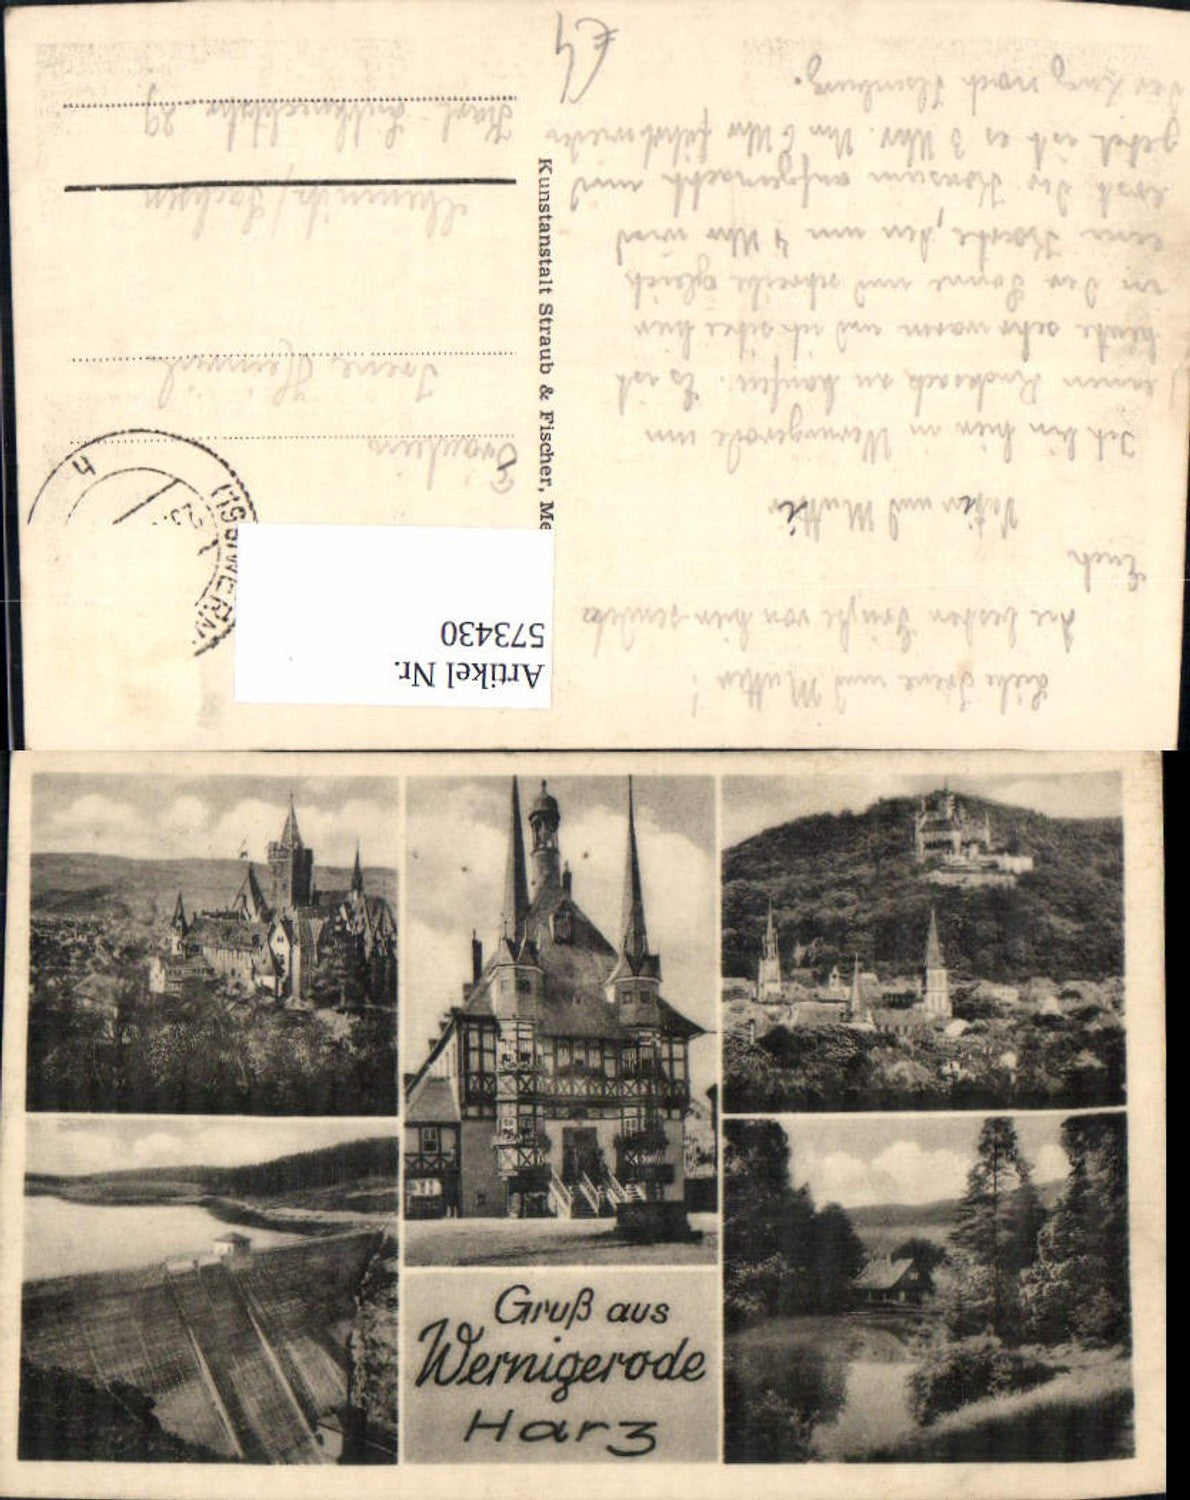 Liebe Irene und Mutter!
die besten Grüße von hier sendet
Euch
Vater und Mutter
Ich bin hier in Wernigerode um
einen Rucksack zu kaufen. Es ist
heute sehr warm und ich sitze hier
in der Sonne und schreibe gleich
eine Karte, denn um 4 Uhr wird
erst der Konsum aufgemacht und
jetzt ist es 3 Uhr. Um 6 Uhr fährt wieder
der Zug nach Ilsenburg.
€4
Kunstanstalt Straub & Fischer, Me
Fräulein
Irene
Chemnitz/Sachsen
Karl Liebknechtstr 29
23.
h
WERN
Artikel Nr.
573430
Gruß aus
Wernigerode
Harz